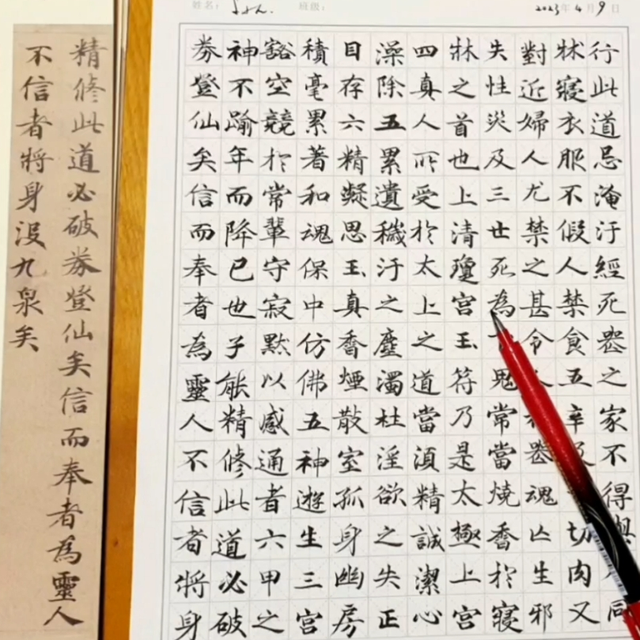 姓名： 班级： 2023年4月9日
行此道忌淹汙經死喪之家不得與同
牀寢衣服不假人禁食五辛切肉又
對近婦人尤禁之甚令喪魂亡生邪
失性災及三世死為鬼常當燒香於寢
牀之首也上清瓊宮玉符乃是太極上宮
四真人所受於太上之道當須精誠潔心
澡除五累遺穢汙之塵濁杜淫欲之失正
目存六精凝思玉真香煙散室孤身幽房
積毫累著和魂保中仿佛五神遊生三宮
豁空競於常輩守寂默以感通者六甲之
神不踰年而降已也子能精修此道必破
券登仙矣信而奉者為靈人不信者將身
精修此道必破券登仙矣信而奉者為靈人
不信者將身沒九泉矣